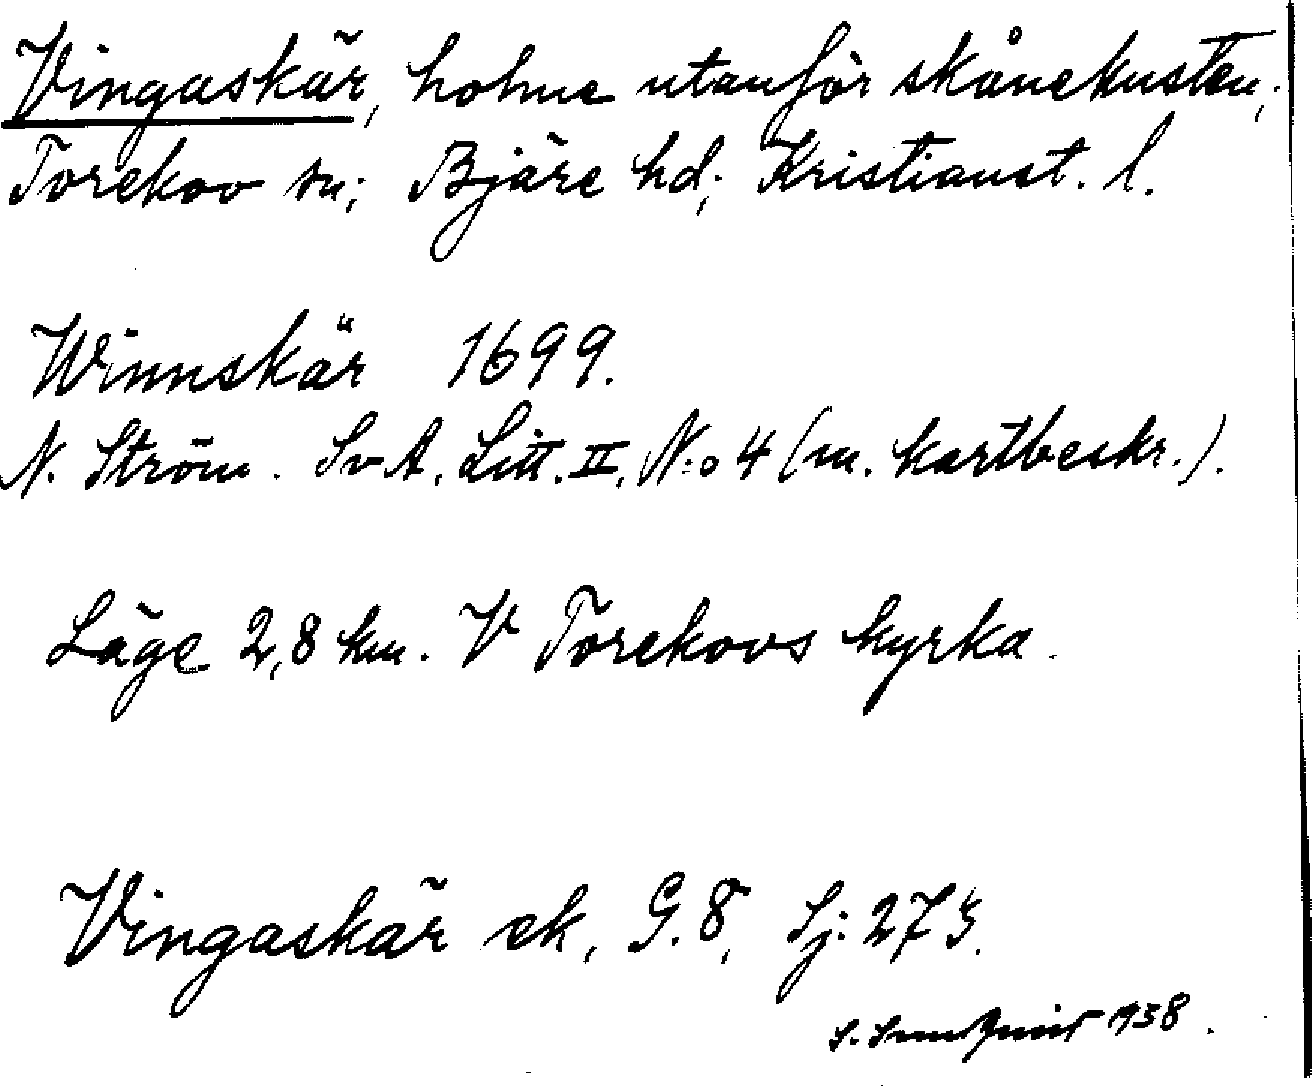 Vingaskär, holme utanför skånekusten,
Torekov sn; Bjäre hd; Kristianst. l.
Winnskär 1699.
N. Ström. SvA. Litt. II, N:o 4 (m. kartbeskr.).
Läge 2,8 km. V Torekovs kyrka.
Vingaskär ek, G.8, Sj: 273.
S. Sundquist 1938.